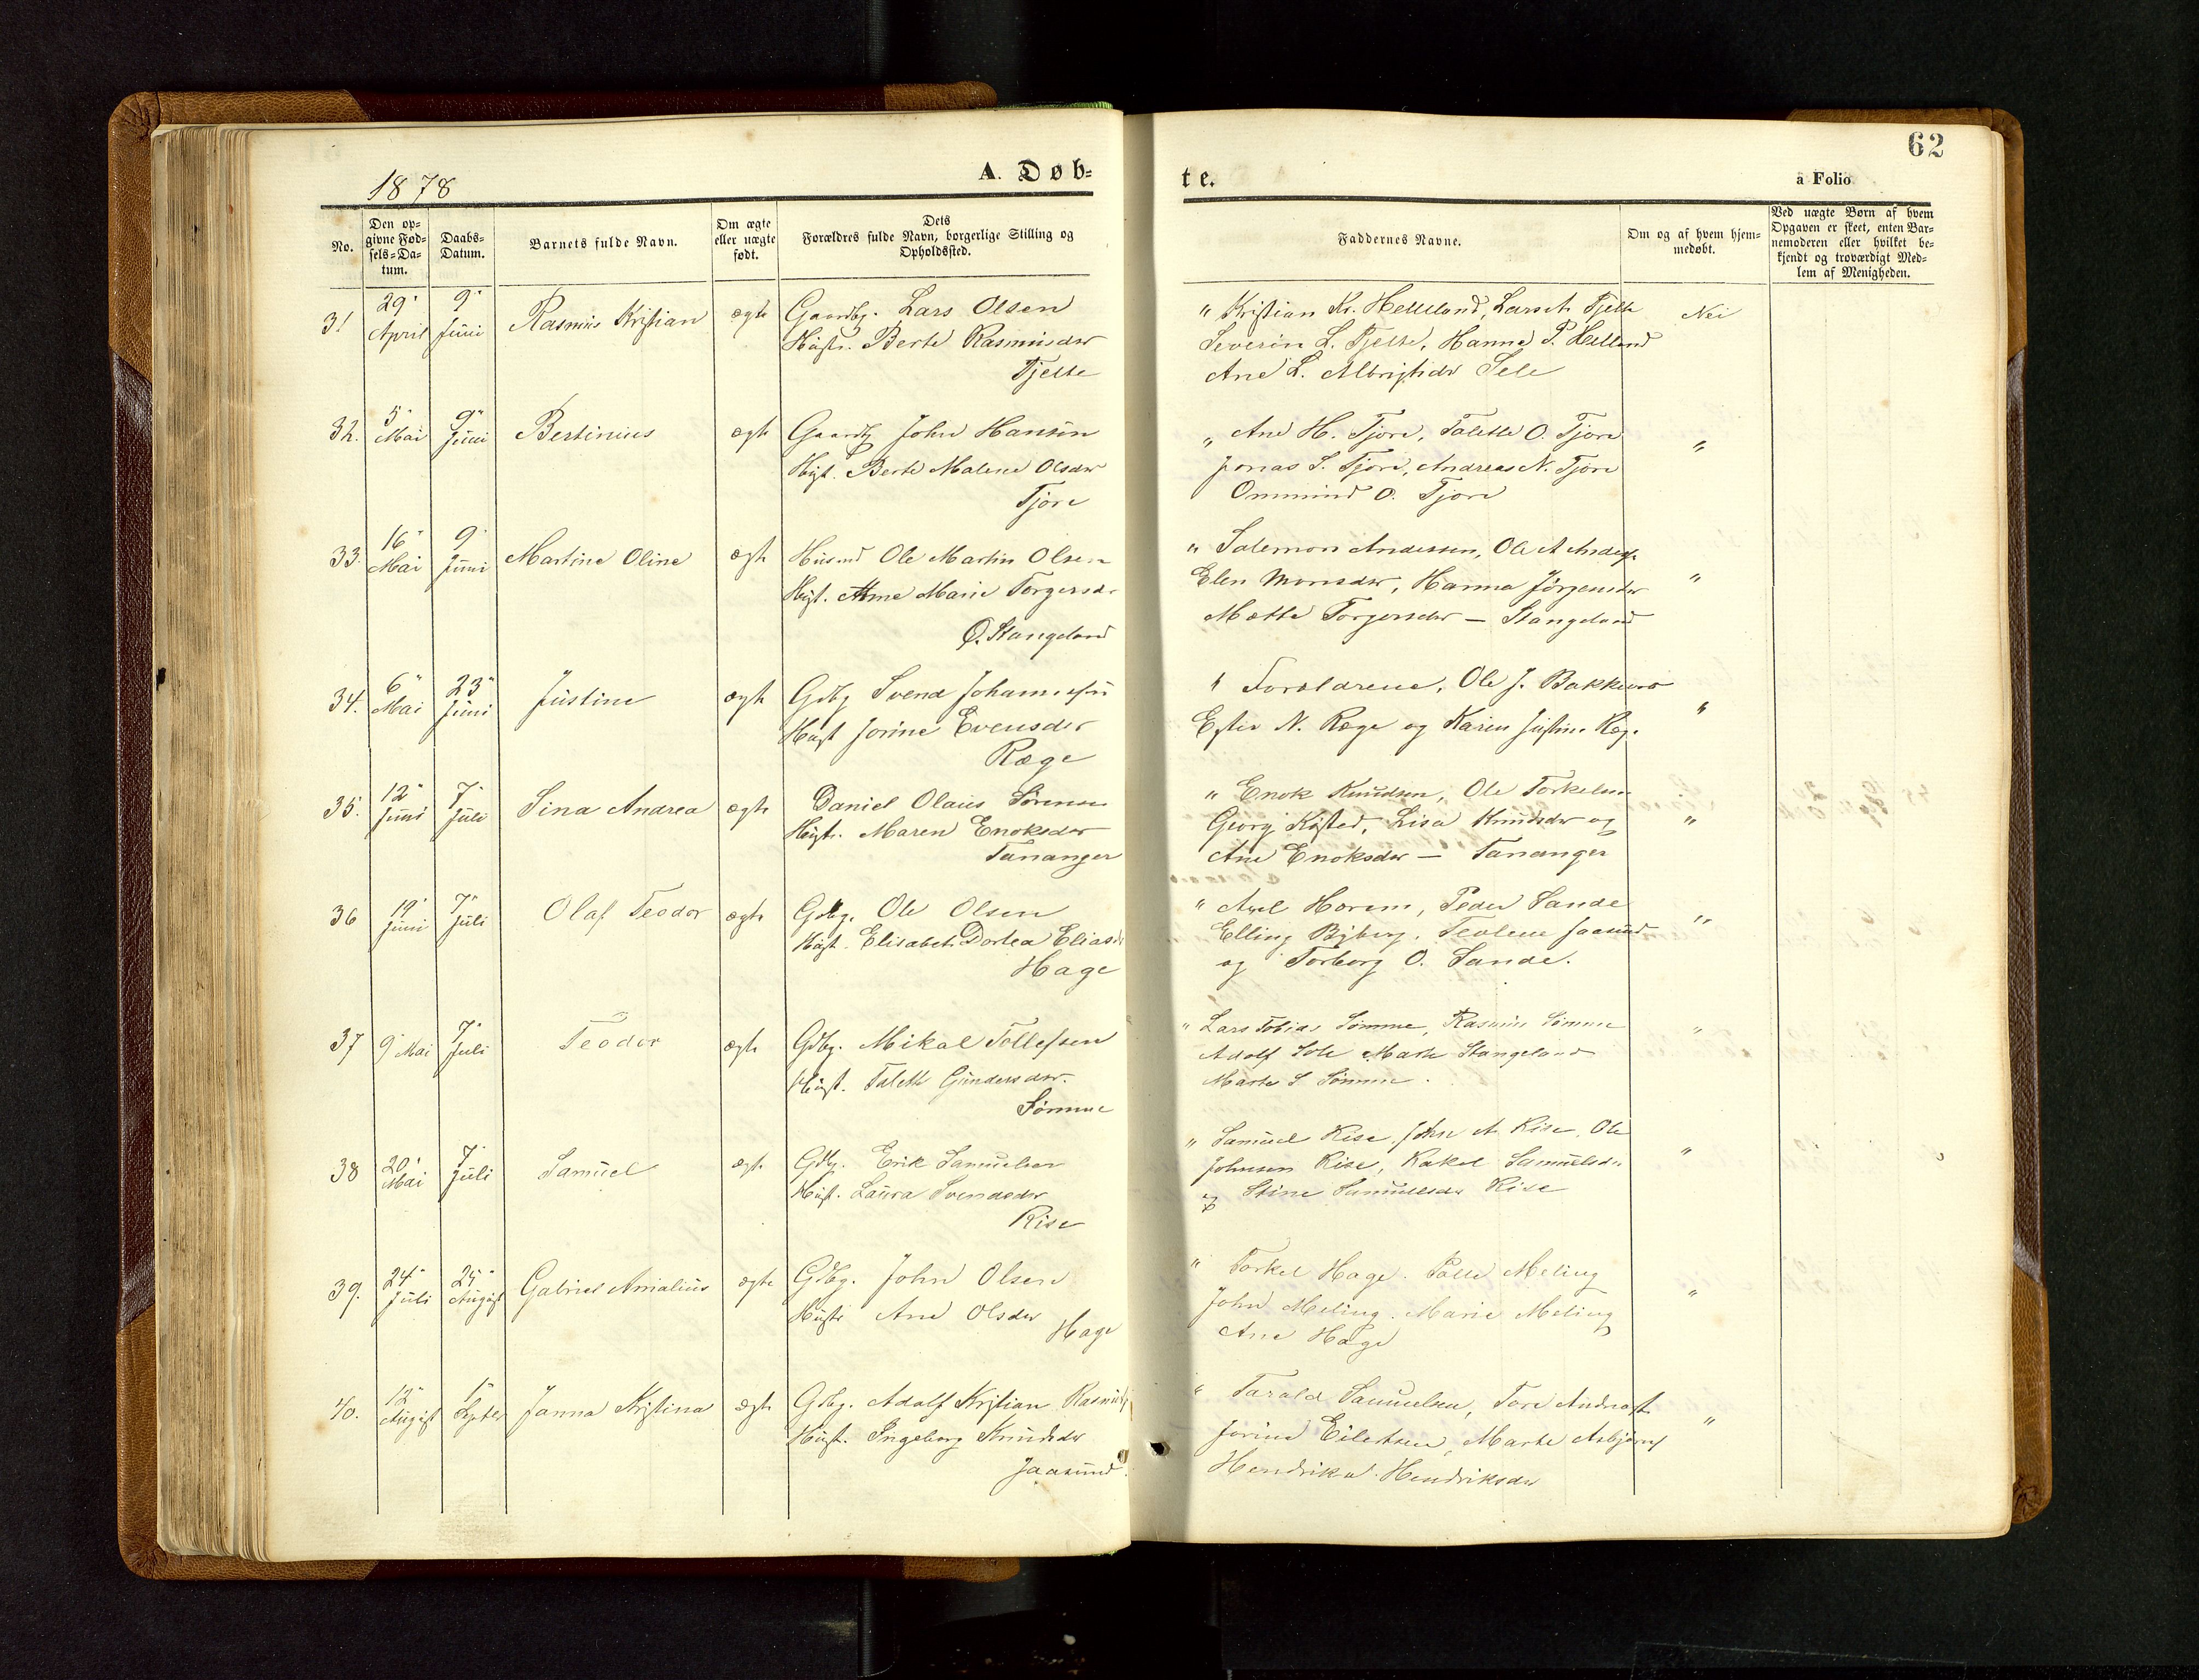 62
1878
A. Døb-
te.
a Folio
No.
Den op-
givne Fød-
sels-Da-
tum.
Daabs-
Datum.
Barnets fulde Navn.
Om ægte
eller uægte
født.
Dets
Forældres fulde Navn, borgerlige Stilling og
Opholdssted.
Faddernes Navne.
Om og af hvem hjem-
medøbt.
Ved uægte Børn af hvem
Opgaven er skeet, enten Bar-
nemoderen eller hvilket be-
kjendt og troværdigt Med-
lem af Menigheden.
31
29 April
9 Juni
Rasmus Kristian
ægte
Gaardbg. Lars Olsen
Hustr. Berte Rasmusdtr
Tjelte
" Kristian Kr. Helleland, Lars Tjelte
Severin L. Tjelte, Hanna P. Helland
Ane L. Albrigtsdtr Sele
Nei
32.
5 Mai
9 Juni
Bertinius
ægte
Gaardbg John Hansen
Hust. Berte Malene Olsdtr
Tjore
" Ane H. Tjore, Talette O. Tjore
Jonas S. Tjore, Andreas N. Tjore
Ommund O. Tjore
"
33.
16 Mai
9 Juni
Martine Oline
ægte
Husmd Ole Martin Olsen
Hust. Anne Marie Torgersd.
Ø. Stangeland
" Salemon Andersen, Ole A Anders.
Elen Monsdtr, Hanna Jørgensdtr
Mette Torgersdtr — Stangeland
"
34.
6 Mai
23 Juni
Justine
ægte
Gdbg Svend Johannessen
Hust Jorine Evensdtr
Ræge
" Forældrene, Ole J. Bakkevig
Ester N. Ræge og Karen Justine Ræge
"
35.
12 Juni
7 Juli
Sina Andrea
ægte
Daniel Olaus Sørensen
Hust. Maren Enoksdtr
Tananger
" Enok Knudsen, Ole Torkelsen
Georg Køsted, Lisa Knudsdtr og
Ane Enoksdtr — Tananger
"
36
19 Juni
7 Juli
Olaf Teodor
ægte
Gdbg. Ole Olsen
Hust. Elisabet Dortea Eliasd
Hage
" Axel Horem, Peder Sande
Elling Byberg, Teoline Jaasund
og Torborg O. Sande.
"
37
9 Mai
7 Juli
Teodor
ægte
Gdbg. Mikal Tollefsen
Hust. Talette Gundersdtr.
Sømme
" Lars Tobias Sømme, Rasmus Sømme
Adolf Sole Marte Stangeland
Marte S Sømme.
"
38
20 Mai
7 Juli
Samuel
ægte
Gdbg. Erik Samuelsen
Hust. Laura Svendsdtr
Rise
" Samuel Rise, John A Rise, Ole
Johnsen Rise, Rakel Samuelsd.
og Stine Samuelsdtr Rise
"
39.
24 Juli
25 August
Gabriel Amalius
ægte
Gdbg. John Olsen
Hustr Ane Olsdtr
Hage
" Torkel Hage. Tolle Meling
John Meling. Marie Meling
Ane Hage
"
40.
12 August
1 Septbr
Janna Kristina
ægte
Gdbg. Adolf Kristian Rasmus
Hust. Ingeborg Knudsdtr
Jaasund.
" Tarald Samuelsen, Tore
Jorine Eilertsen, Marte Asbjørns
Hendrika Hendriksdtr
"